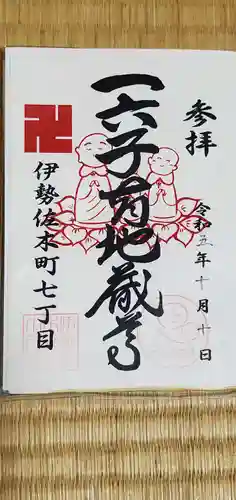 参拝
令和五年十月十日
一六子育地蔵尊
卍
伊勢佐木町七丁目